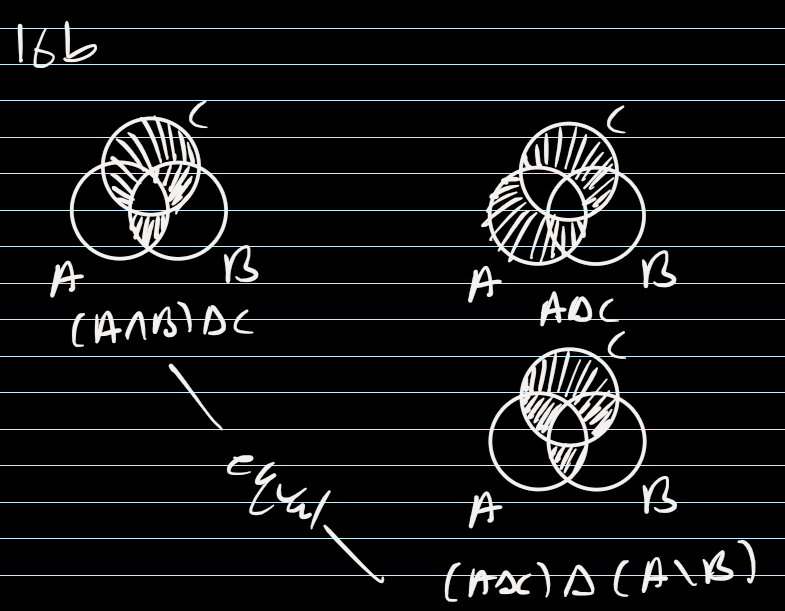 16b
C
A
B
(A∩B)ΔC
C
A
B
AΔC
C
A
B
(AΔC)Δ(A\B)
equal